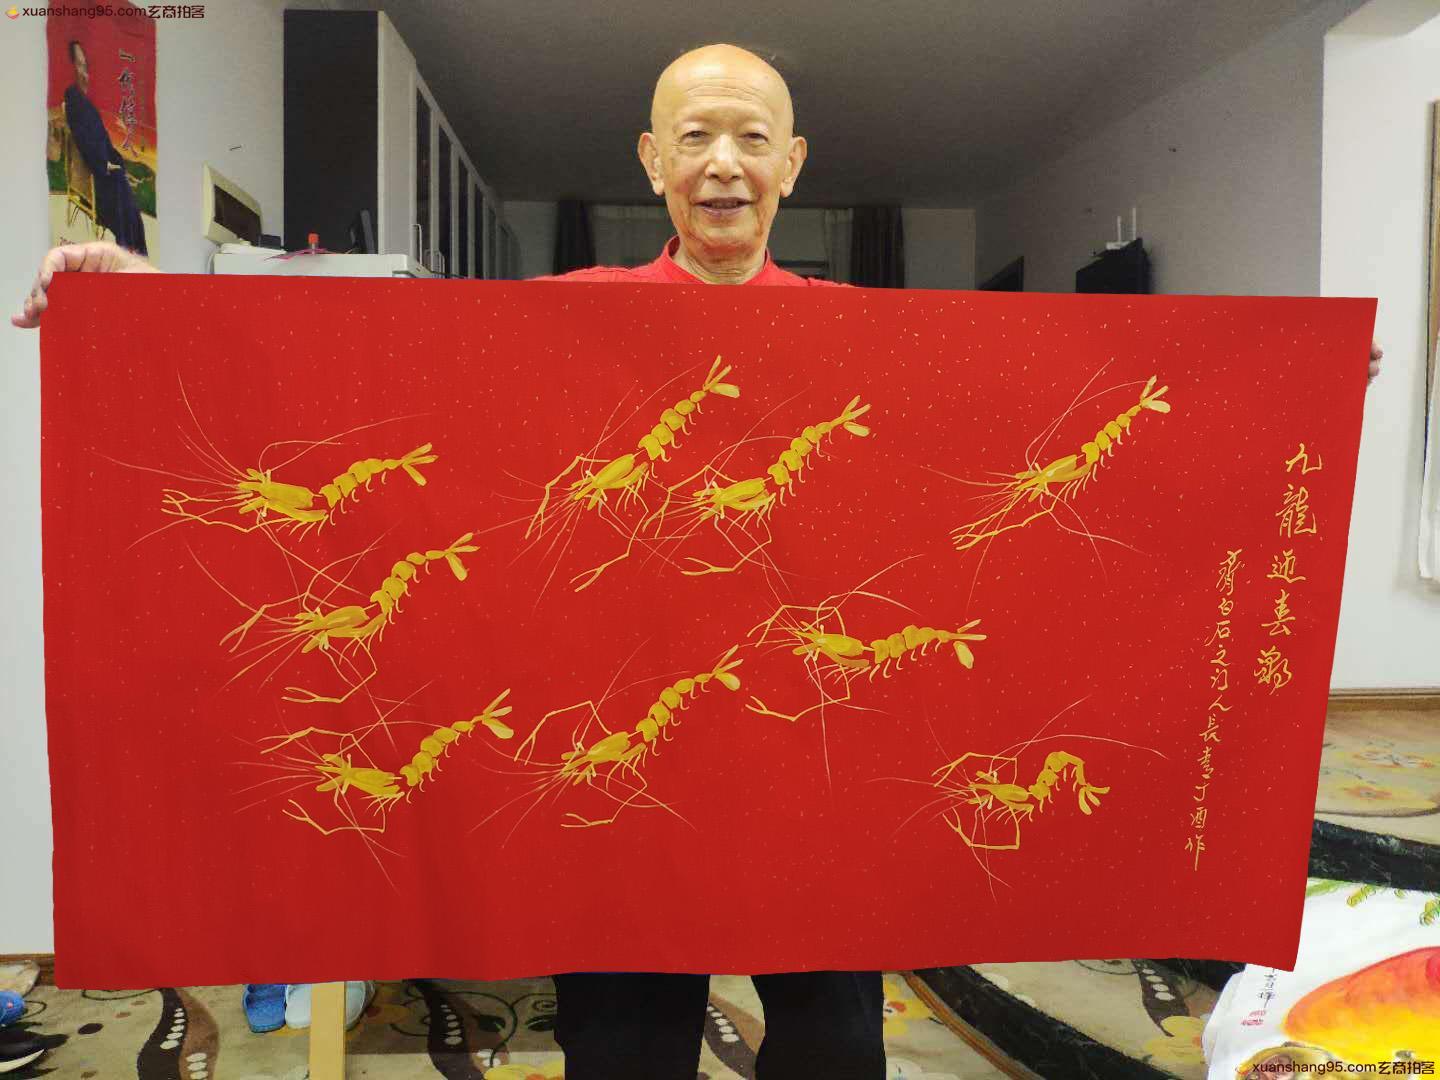 xuanshang95.com玄商拍客
一代伟人
九龍迎春翔
齊白石之门人長青丁酉作
xuanshang95.com玄商拍客